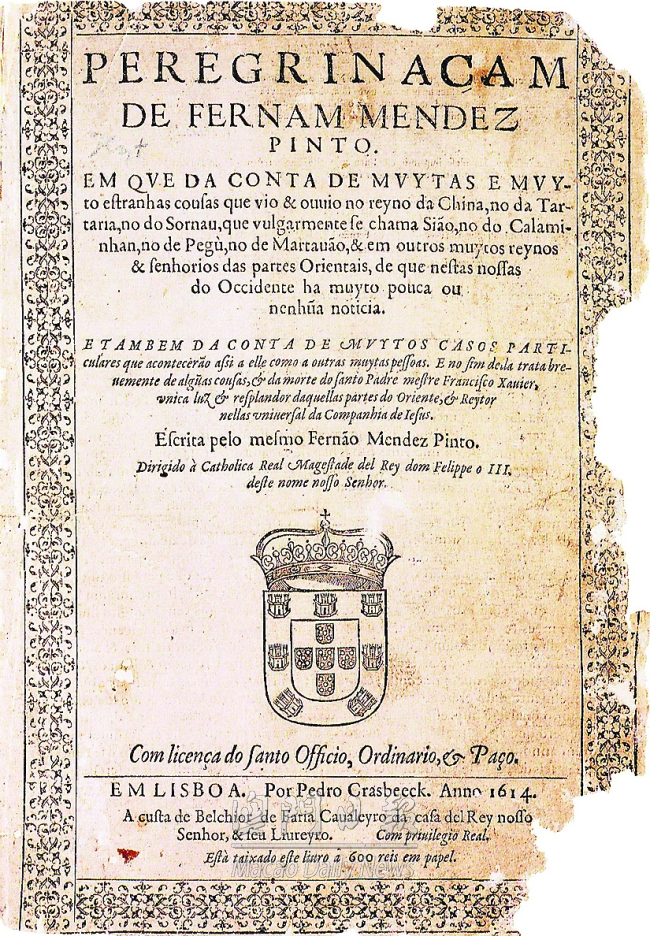 PEREGRINAÇAM
DE FERNAM MENDEZ
PINTO.
EM QVE DA CONTA DE MVYTAS E MVY-
to eſtranhas couſas que vio & ouuio no reyno da China, no da Tar-
taria, no do Sornau, que vulgarmente ſe chama Sião, no do Calami-
nhan, no de Pegù, no de Martauão, & em outros muytos reynos
& ſenhorios das partes Orientais, de que neſtas noſſas
do Occidente ha muyto pouca ou
nenhũa noticia.
E TAMBEM DA CONTA DE MVYTOS CASOS PARTI-
culares que acontecerão aſsi a elle como a outras muytas peſſoas. E no fim della trata bre-
uemente de algũas couſas, & da morte do ſanto Padre meſtre Franciſco Xauier,
vnica luz & reſplandor daquellas partes do Oriente, & Reytor
nellas vniuerſal da Companhia de Ieſus.
Eſcrita pelo meſmo Fernão Mendez Pinto.
Dirigido à Catholica Real Mageſtade del Rey dom Felippe o III.
deſte nome noſſo Senhor.
Com licença do ſanto Officio, Ordinario, & Paço.
EM LISBOA. Por Pedro Crasbeeck. Anno 1614.
A cuſta de Belchior de Faria Caualeyro da caſa del Rey noſſo
Senhor, & ſeu Liureyro. Com priuilegio Real.
Eſtà taixado eſte liuro a 600 reis em papel.
澳門日報
Macao Daily News